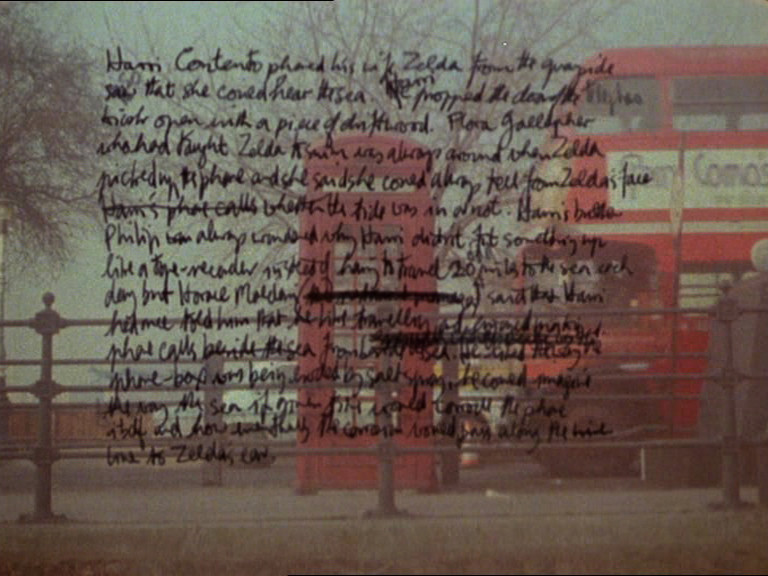 Harri Contento phoned his wife Zelda from the quayside
so that she could hear the sea. Harri propped the door of the
kiosk open with a piece of driftwood. Flora Gallagher
who had taught Zelda to swim was always around when Zelda
picked up the phone and she said she could always tell from Zelda's face
Harri's phone calls whether the tide was in or not. Harri's brother
Philip always wondered why Harri didn't fit something up
like a tape-recorder instead of having to travel 20 miles to the sea each
day but Horace said that Harri
had once told him that he like travelling
phone calls beside the sea
phone-box was being eroded by salt spray. He could imagine
the way the sea if given time would corrode the phone
itself and how eventually the corrosion would pass along the wire
line to Zelda's ear.